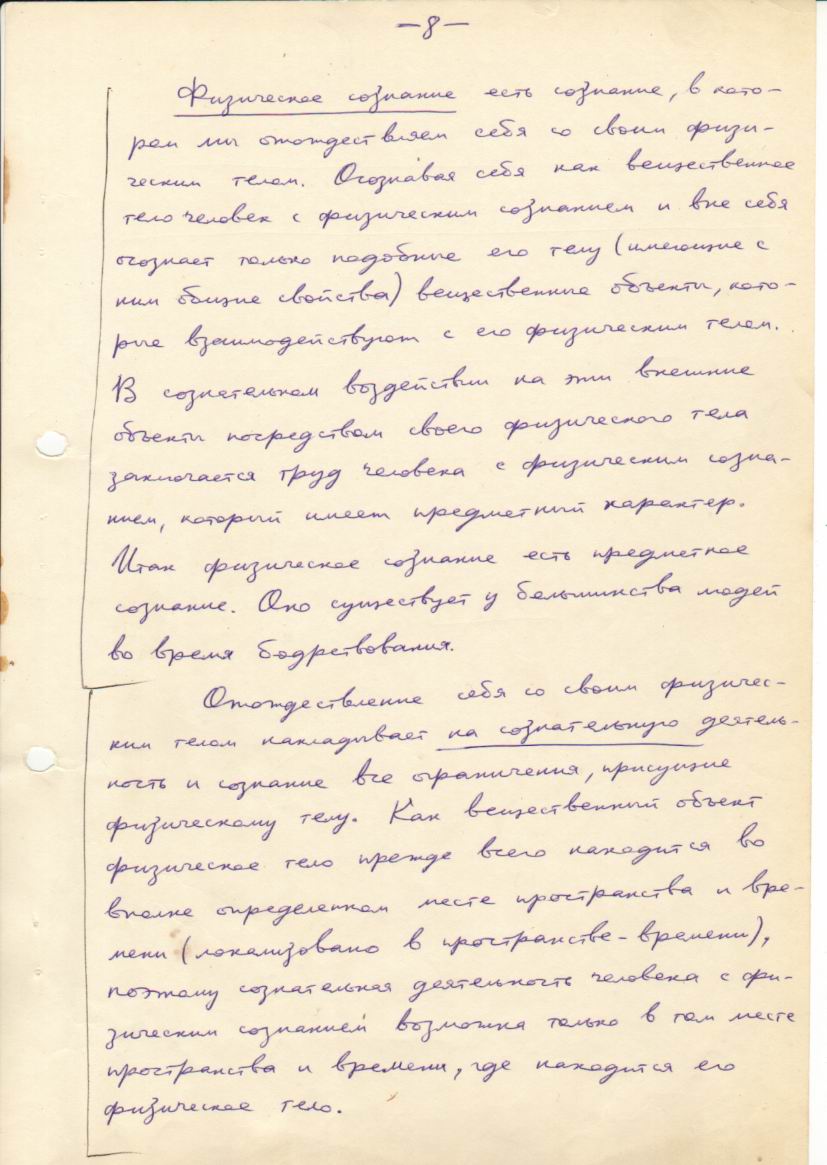 —8—
Физическое сознание есть сознание, в кото-
ром мы отождествляем себя со своим физи-
ческим телом. Осознавая себя как вещественное
тело человек с физическим сознанием и вне себя
осознает только подобные его телу (имеющие с
ним общие свойства) вещественные объекты, кото-
рые взаимодействуют с его физическим телом.
В сознательном воздействии на эти внешние
объекты посредством своего физического тела
заключается труд человека с физическим созна-
нием, который имеет предметный характер.
Итак физическое сознание есть предметное
сознание. Оно существует у большинства людей
во время бодрствования.
Отождествление себя со своим физичес-
ким телом накладывает на сознательную деятель-
ность и сознание все ограничения, присущие
физическому телу. Как вещественный объект
физическое тело прежде всего находится во
вполне определенном месте пространства и вре-
мени (локализовано в пространстве-времени),
поэтому сознательная деятельность человека с фи-
зическим сознанием возможна только в том месте
пространства и времени, где находится его
физическое тело.